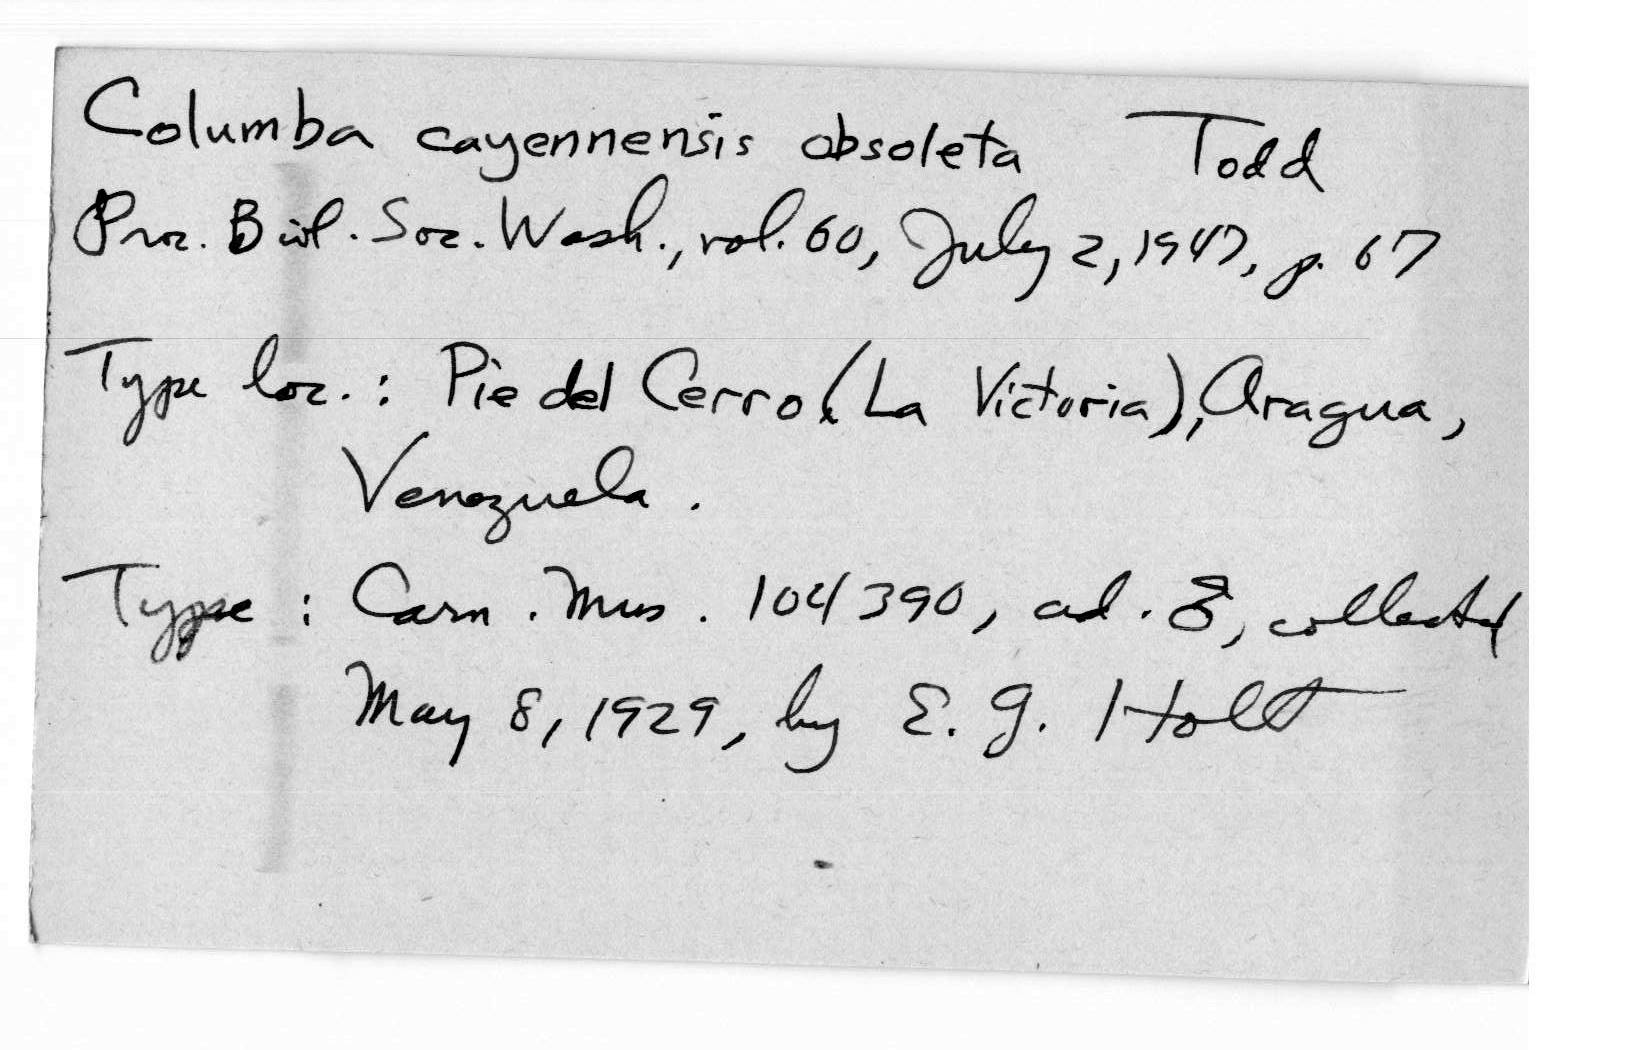 Columba cayennensis obsoleta Todd
Proc. Biol. Soc. Wash., vol. 60, July 2, 1947, p. 67
Type loc.: Pie del Cerro (La Victoria), Aragua,
Venezuela.
Type: Carn. Mus. 104390, ad. ♂, collected
May 8, 1929, by E. G. Holt